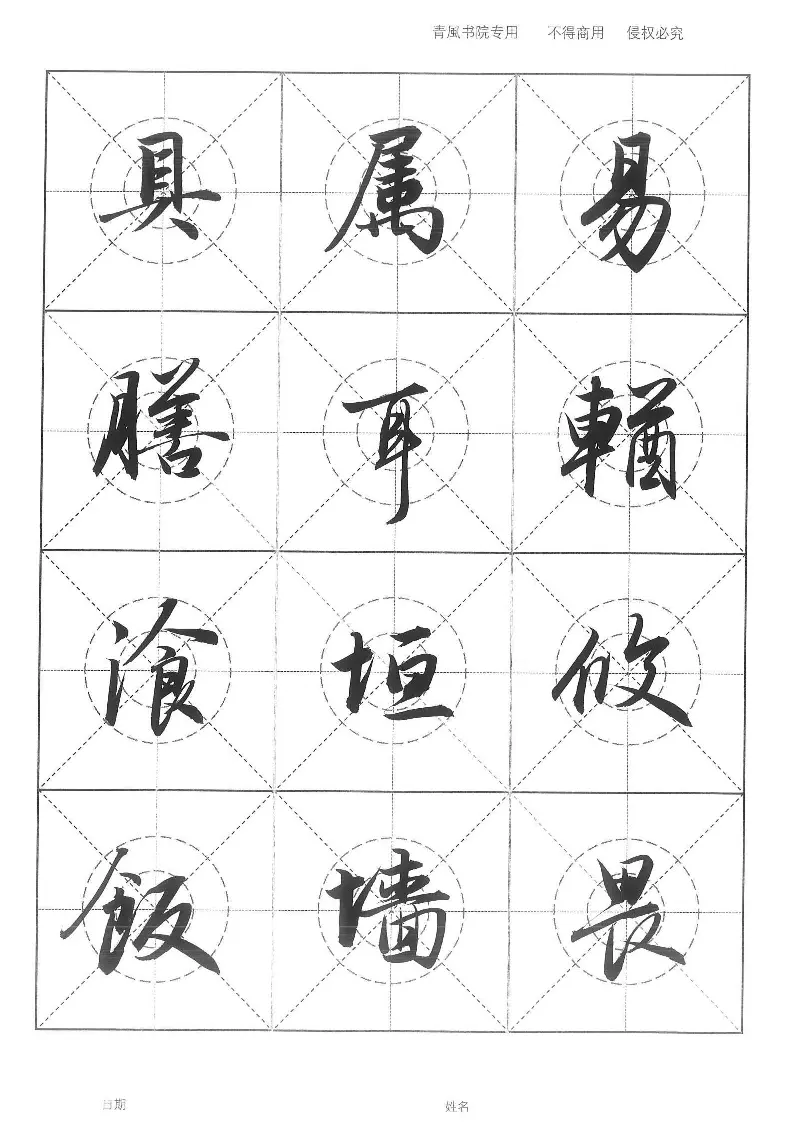 青風书院专用 不得商用 侵权必究
易輶攸畏
属耳垣墙
具膳湌飯
日期 姓名